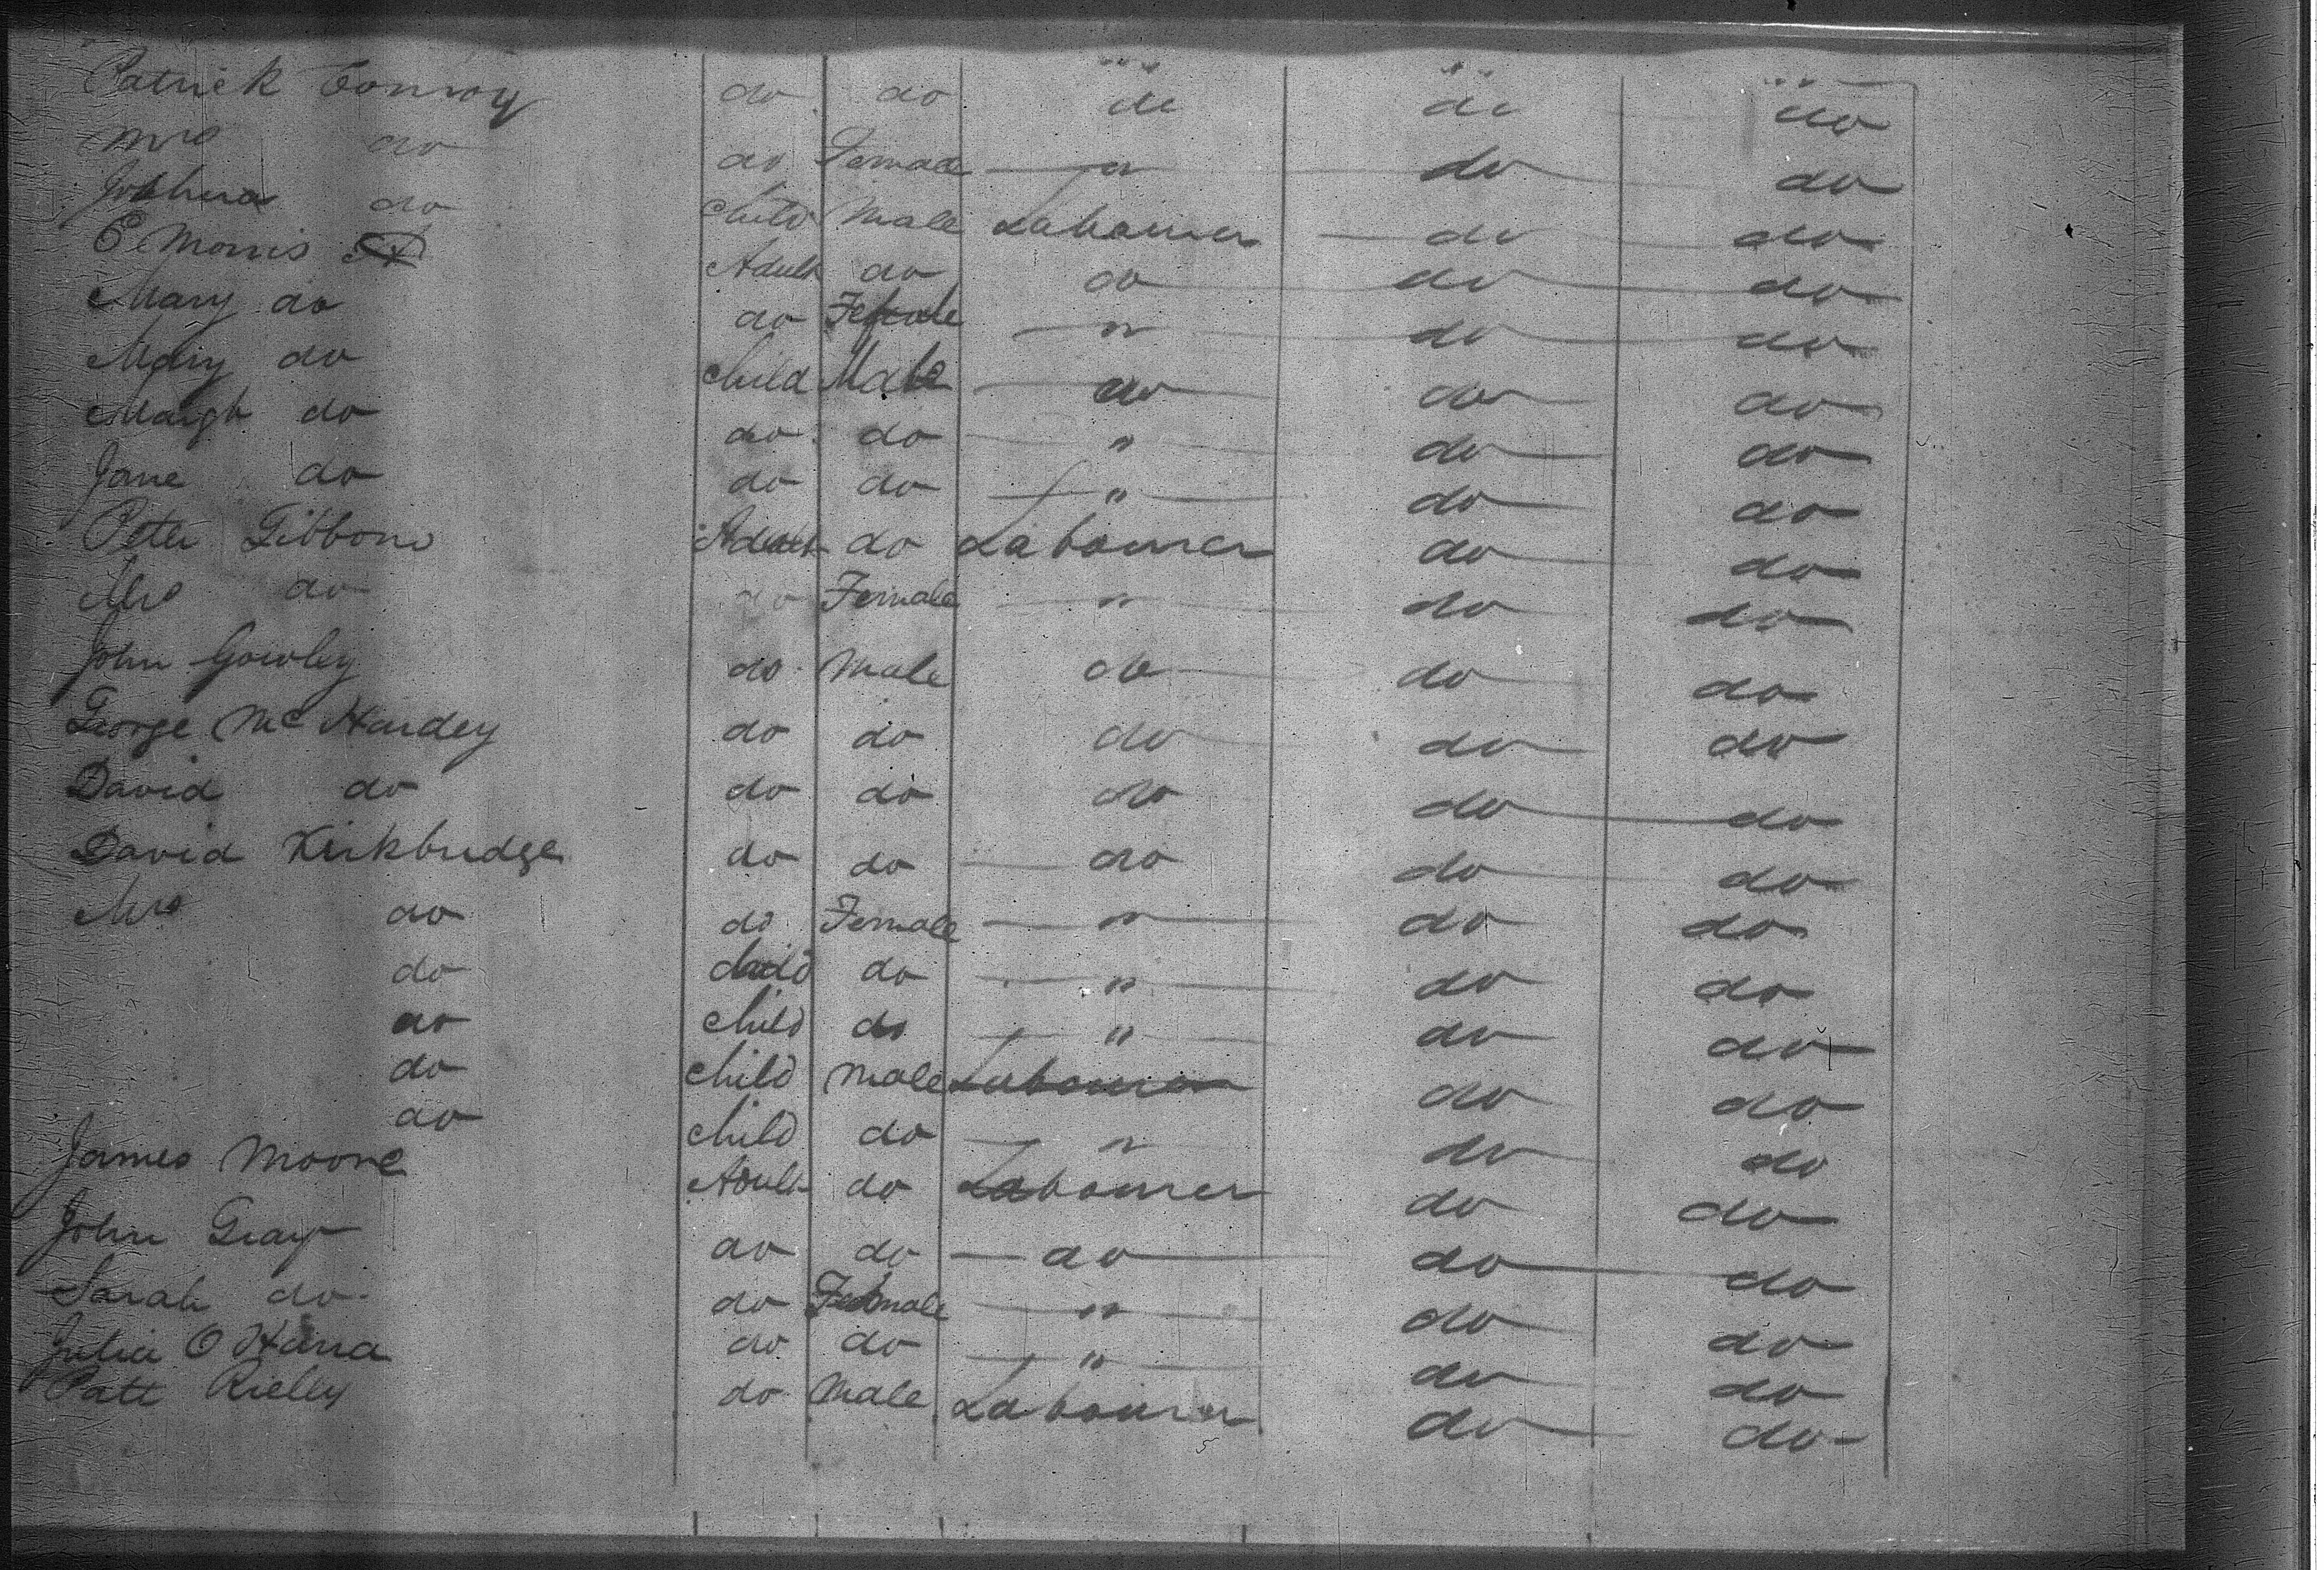 Patrick Conroy do do do do do
Mrs do do Female " do do
Joshua do Child Male Labourer do do
E Morris Adult do do do do
Mary do do Female " do do
Mary do Child Male do do do
Margt do do do " do do
Jane do do do " do do
Peter Gibbons Adult do Labourer do do
Mrs do do Female " do do
John Gowley do Male do do do
George McHardey do do do do do
David do do do do do do
David Kirkbridge do do do do do
Mrs do do Female " do do
do Child do " do do
do Child do " do do
do Child Male Labourer do do
do Child do " do do
James Moore Adult do Labourer do do
John Gray do do do do do
Sarah do do Female " do do
Julia O Hara do do " do do
Patt Rielly do Male Labourer do do